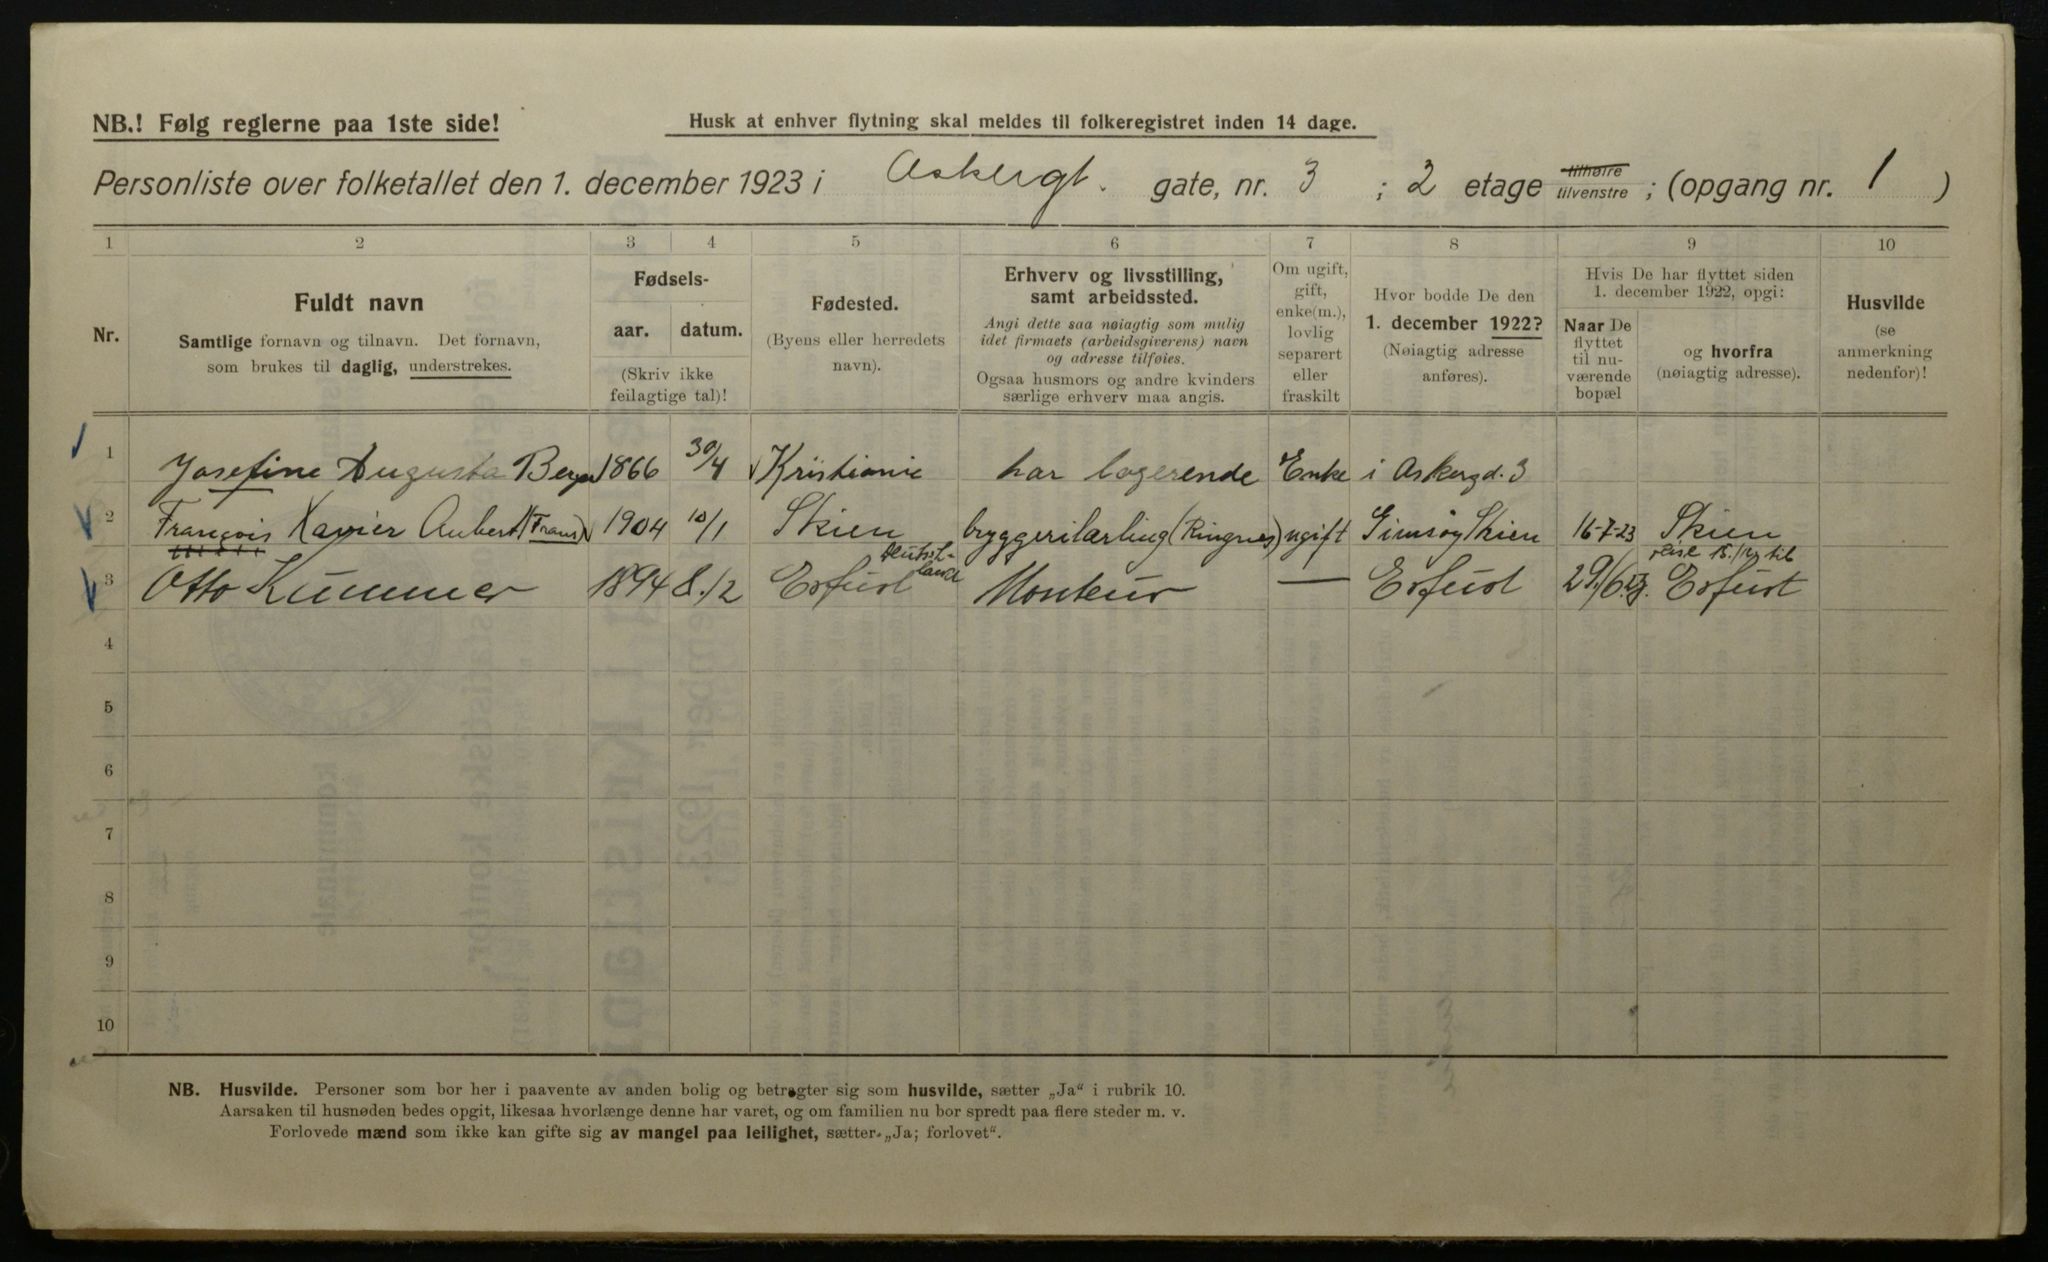 NB.! Følg reglerne paa 1ste side!
Husk at enhver flytning skal meldes til folkeregistret inden 14 dage.
Personliste over folketallet den 1. december 1923 i Askergt. gate, nr. 3 ; 2 etage tilhøire tilvenstre ; (opgang nr. 1 )
1 2 3 4 5 6 7 8 9 10
Nr.
Fuldt navn
Samtlige fornavn og tilnavn. Det fornavn,
som brukes til daglig, understrekes.
Fødsels-
aar. datum.
(Skriv ikke
feilagtige tal)!
Fødested.
(Byens eller herredets
navn).
Erhverv og livsstilling,
samt arbeidssted.
Angi dette saa nøiagtig som mulig
idet firmaets (arbeidsgiverens) navn
og adresse tilføies.
Ogsaa husmors og andre kvinders
særlige erhverv maa angis.
Om ugift,
gift,
enke(m.),
lovlig
separert
eller
fraskilt
Hvor bodde De den
1. december 1922?
(Nøiagtig adresse
anføres).
Hvis De har flyttet siden
1. december 1922, opgi:
Naar De
flyttet
til nu-
værende
bopæl
og hvorfra
(nøiagtig adresse).
Husvilde
(se
anmerkning
nedenfor)!
1 Josefine Augusta Berger 1866 30/4 Kristiania har logerende Enke i Askergd. 3
2 François Xavier Aubert (Frans) 1904 10/1 Skien bryggerilærling (Ringnes) ugift Gimsøy Skien 16-7-23 Skien
3 Otto Kummer 1894 8./2 Erfurt Deutschland Monteur — Erfurt 29/6.23. reise 15./12 til Erfurt
4
5
6
7
8
9
10
NB. Husvilde. Personer som bor her i paavente av anden bolig og betragter sig som husvilde, sætter „Ja“ i rubrik 10.
Aarsaken til husnøden bedes opgit, likesaa hvorlænge denne har varet, og om familien nu bor spredt paa flere steder m. v.
Forlovede mænd som ikke kan gifte sig av mangel paa leilighet, sætter „Ja; forlovet“.